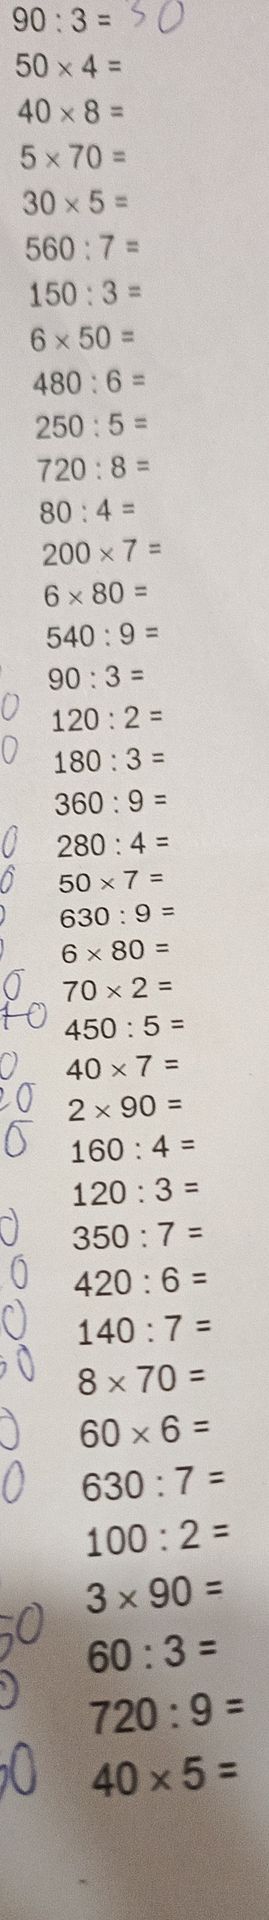 90 : 3 = 30
50 × 4 =
40 × 8 =
5 × 70 =
30 × 5 =
560 : 7 =
150 : 3 =
6 × 50 =
480 : 6 =
250 : 5 =
720 : 8 =
80 : 4 =
200 × 7 =
6 × 80 =
540 : 9 =
90 : 3 =
120 : 2 =
180 : 3 =
360 : 9 =
280 : 4 =
50 × 7 =
630 : 9 =
6 × 80 =
70 × 2 =
450 : 5 =
40 × 7 =
2 × 90 =
160 : 4 =
120 : 3 =
350 : 7 =
420 : 6 =
140 : 7 =
8 × 70 =
60 × 6 =
630 : 7 =
100 : 2 =
3 × 90 =
60 : 3 =
720 : 9 =
40 × 5 =